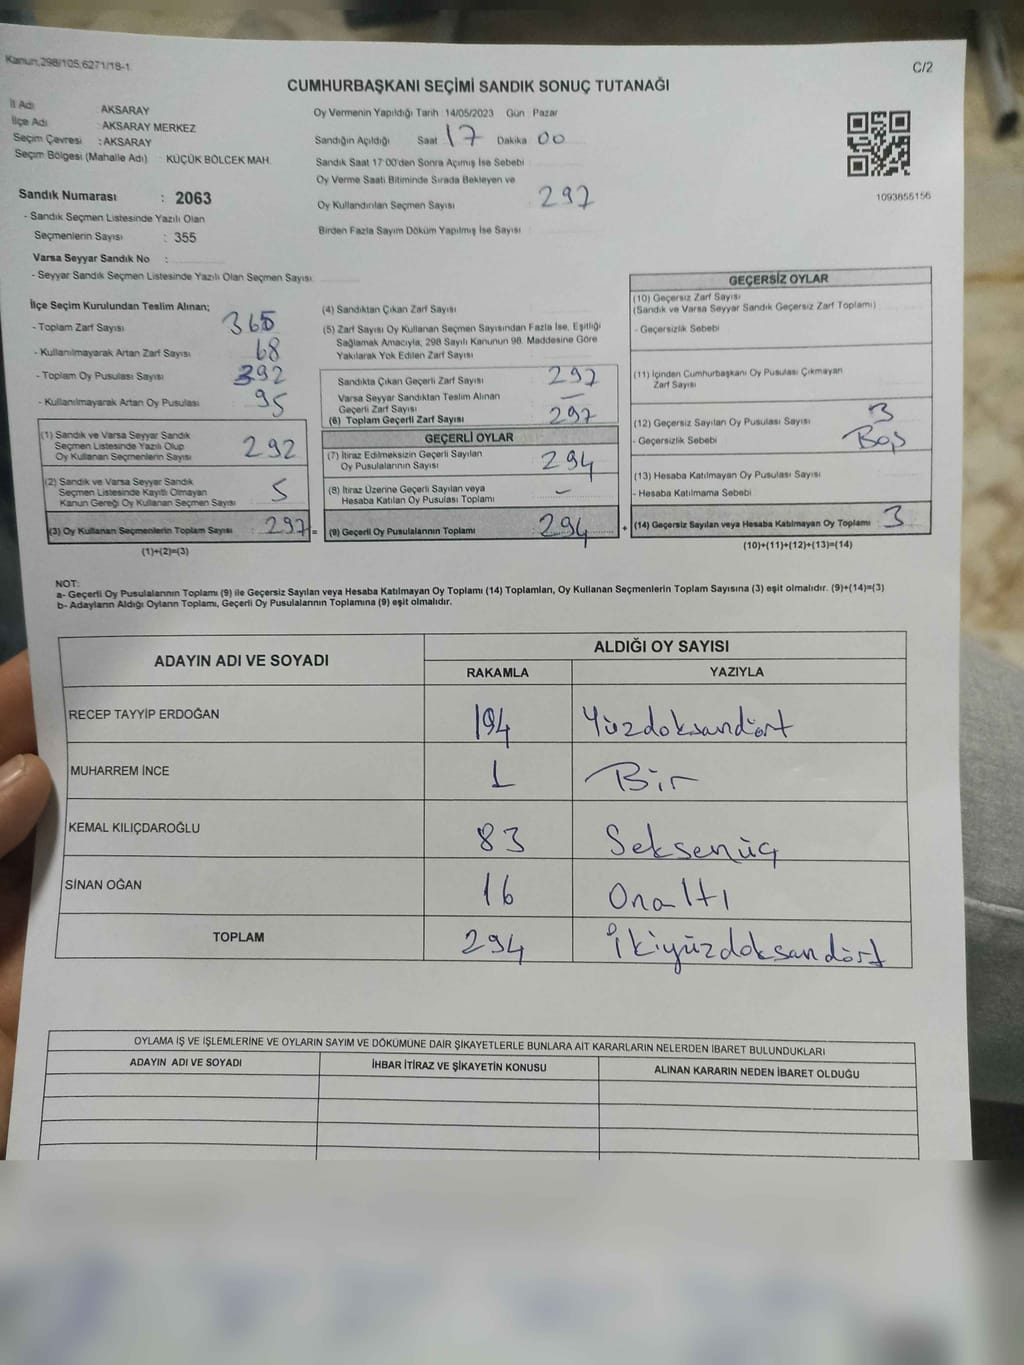 Kanun.298/105.6271/18-1
C/2
CUMHURBAŞKANI SEÇİMİ SANDIK SONUÇ TUTANAĞI
İl Adı AKSARAY
İlçe Adı : AKSARAY MERKEZ
Seçim Çevresi : AKSARAY
Seçim Bölgesi (Mahalle Adı) : KÜÇÜK BÖLCEK MAH.
Sandık Numarası : 2063
- Sandık Seçmen Listesinde Yazılı Olan
Seçmenlerin Sayısı : 355
Varsa Seyyar Sandık No :
- Seyyar Sandık Seçmen Listesinde Yazılı Olan Seçmen Sayısı
Oy Vermenin Yapıldığı Tarih 14/05/2023 Gün Pazar
Sandığın Açıldığı Saat 17 Dakika 00
Sandık Saat 17:00'den Sonra Açımış İse Sebebi
Oy Verme Saati Bitiminde Sırada Bekleyen ve
Oy Kullandırılan Seçmen Sayısı 297
Birden Fazla Sayım Döküm Yapılmış İse Sayısı
1093855156
İlçe Seçim Kurulundan Teslim Alınan;
- Toplam Zarf Sayısı 365
- Kullanılmayarak Artan Zarf Sayısı 68
- Toplam Oy Pusulası Sayısı 392
- Kullanılmayarak Artan Oy Pusulası 95
(1) Sandık ve Varsa Seyyar Sandık
Seçmen Listesinde Yazılı Olup
Oy Kullanan Seçmenlerin Sayısı 292
(2) Sandık ve Varsa Seyyar Sandık
Seçmen Listesinde Kayıtlı Olmayan
Kanun Gereği Oy Kullanan Seçmen Sayısı 5
(3) Oy Kullanan Seçmenlerin Toplam Sayısı : 297 =
(1)+(2)=(3)
(4) Sandıktan Çıkan Zarf Sayısı
(5) Zarf Sayısı Oy Kullanan Seçmen Sayısından Fazla İse, Eşitliği
Sağlamak Amacıyla, 298 Sayılı Kanunun 98. Maddesine Göre
Yakılarak Yok Edilen Zarf Sayısı
Sandıkta Çıkan Geçerli Zarf Sayısı 297
Varsa Seyyar Sandıktan Teslim Alınan
Geçerli Zarf Sayısı —
(6) Toplam Geçerli Zarf Sayısı 297
GEÇERLİ OYLAR
(7) İtiraz Edilmeksizin Geçerli Sayılan
Oy Pusulalarının Sayısı 294
(8) İtiraz Üzerine Geçerli Sayılan veya
Hesaba Katılan Oy Pusulası Toplamı —
(9) Geçerli Oy Pusulalarının Toplamı 294 +
GEÇERSİZ OYLAR
(10) Geçersiz Zarf Sayısı
(Sandık ve Varsa Seyyar Sandık Geçersiz Zarf Toplamı)
- Geçersizlik Sebebi
(11) İçinden Cumhurbaşkanı Oy Pusulası Çıkmayan
Zarf Sayısı
(12) Geçersiz Sayılan Oy Pusulası Sayısı 3
- Geçersizlik Sebebi Boş
(13) Hesaba Katılmayan Oy Pusulası Sayısı
- Hesaba Katılmama Sebebi
(14) Geçersiz Sayılan veya Hesaba Katılmayan Oy Toplamı 3
(10)+(11)+(12)+(13)=(14)
NOT:
a- Geçerli Oy Pusulalarının Toplamı (9) ile Geçersiz Sayılan veya Hesaba Katılmayan Oy Toplamı (14) Toplamları, Oy Kullanan Seçmenlerin Toplam Sayısına (3) eşit olmalıdır. (9)+(14)=(3)
b- Adayların Aldığı Oyların Toplamı, Geçerli Oy Pusulalarının Toplamına (9) eşit olmalıdır.
ADAYIN ADI VE SOYADI ALDIĞI OY SAYISI
RAKAMLA YAZIYLA
RECEP TAYYİP ERDOĞAN 194 Yüzdoksandört
MUHARREM İNCE 1 Bir
KEMAL KILIÇDAROĞLU 83 Seksenüç
SİNAN OĞAN 16 Onaltı
TOPLAM 294 İkiyüzdoksandört
OYLAMA İŞ VE İŞLEMLERİNE VE OYLARIN SAYIM VE DÖKÜMÜNE DAİR ŞİKAYETLERLE BUNLARA AİT KARARLARIN NELERDEN İBARET BULUNDUKLARI
ADAYIN ADI VE SOYADI İHBAR İTİRAZ VE ŞİKAYETİN KONUSU ALINAN KARARIN NEDEN İBARET OLDUĞU